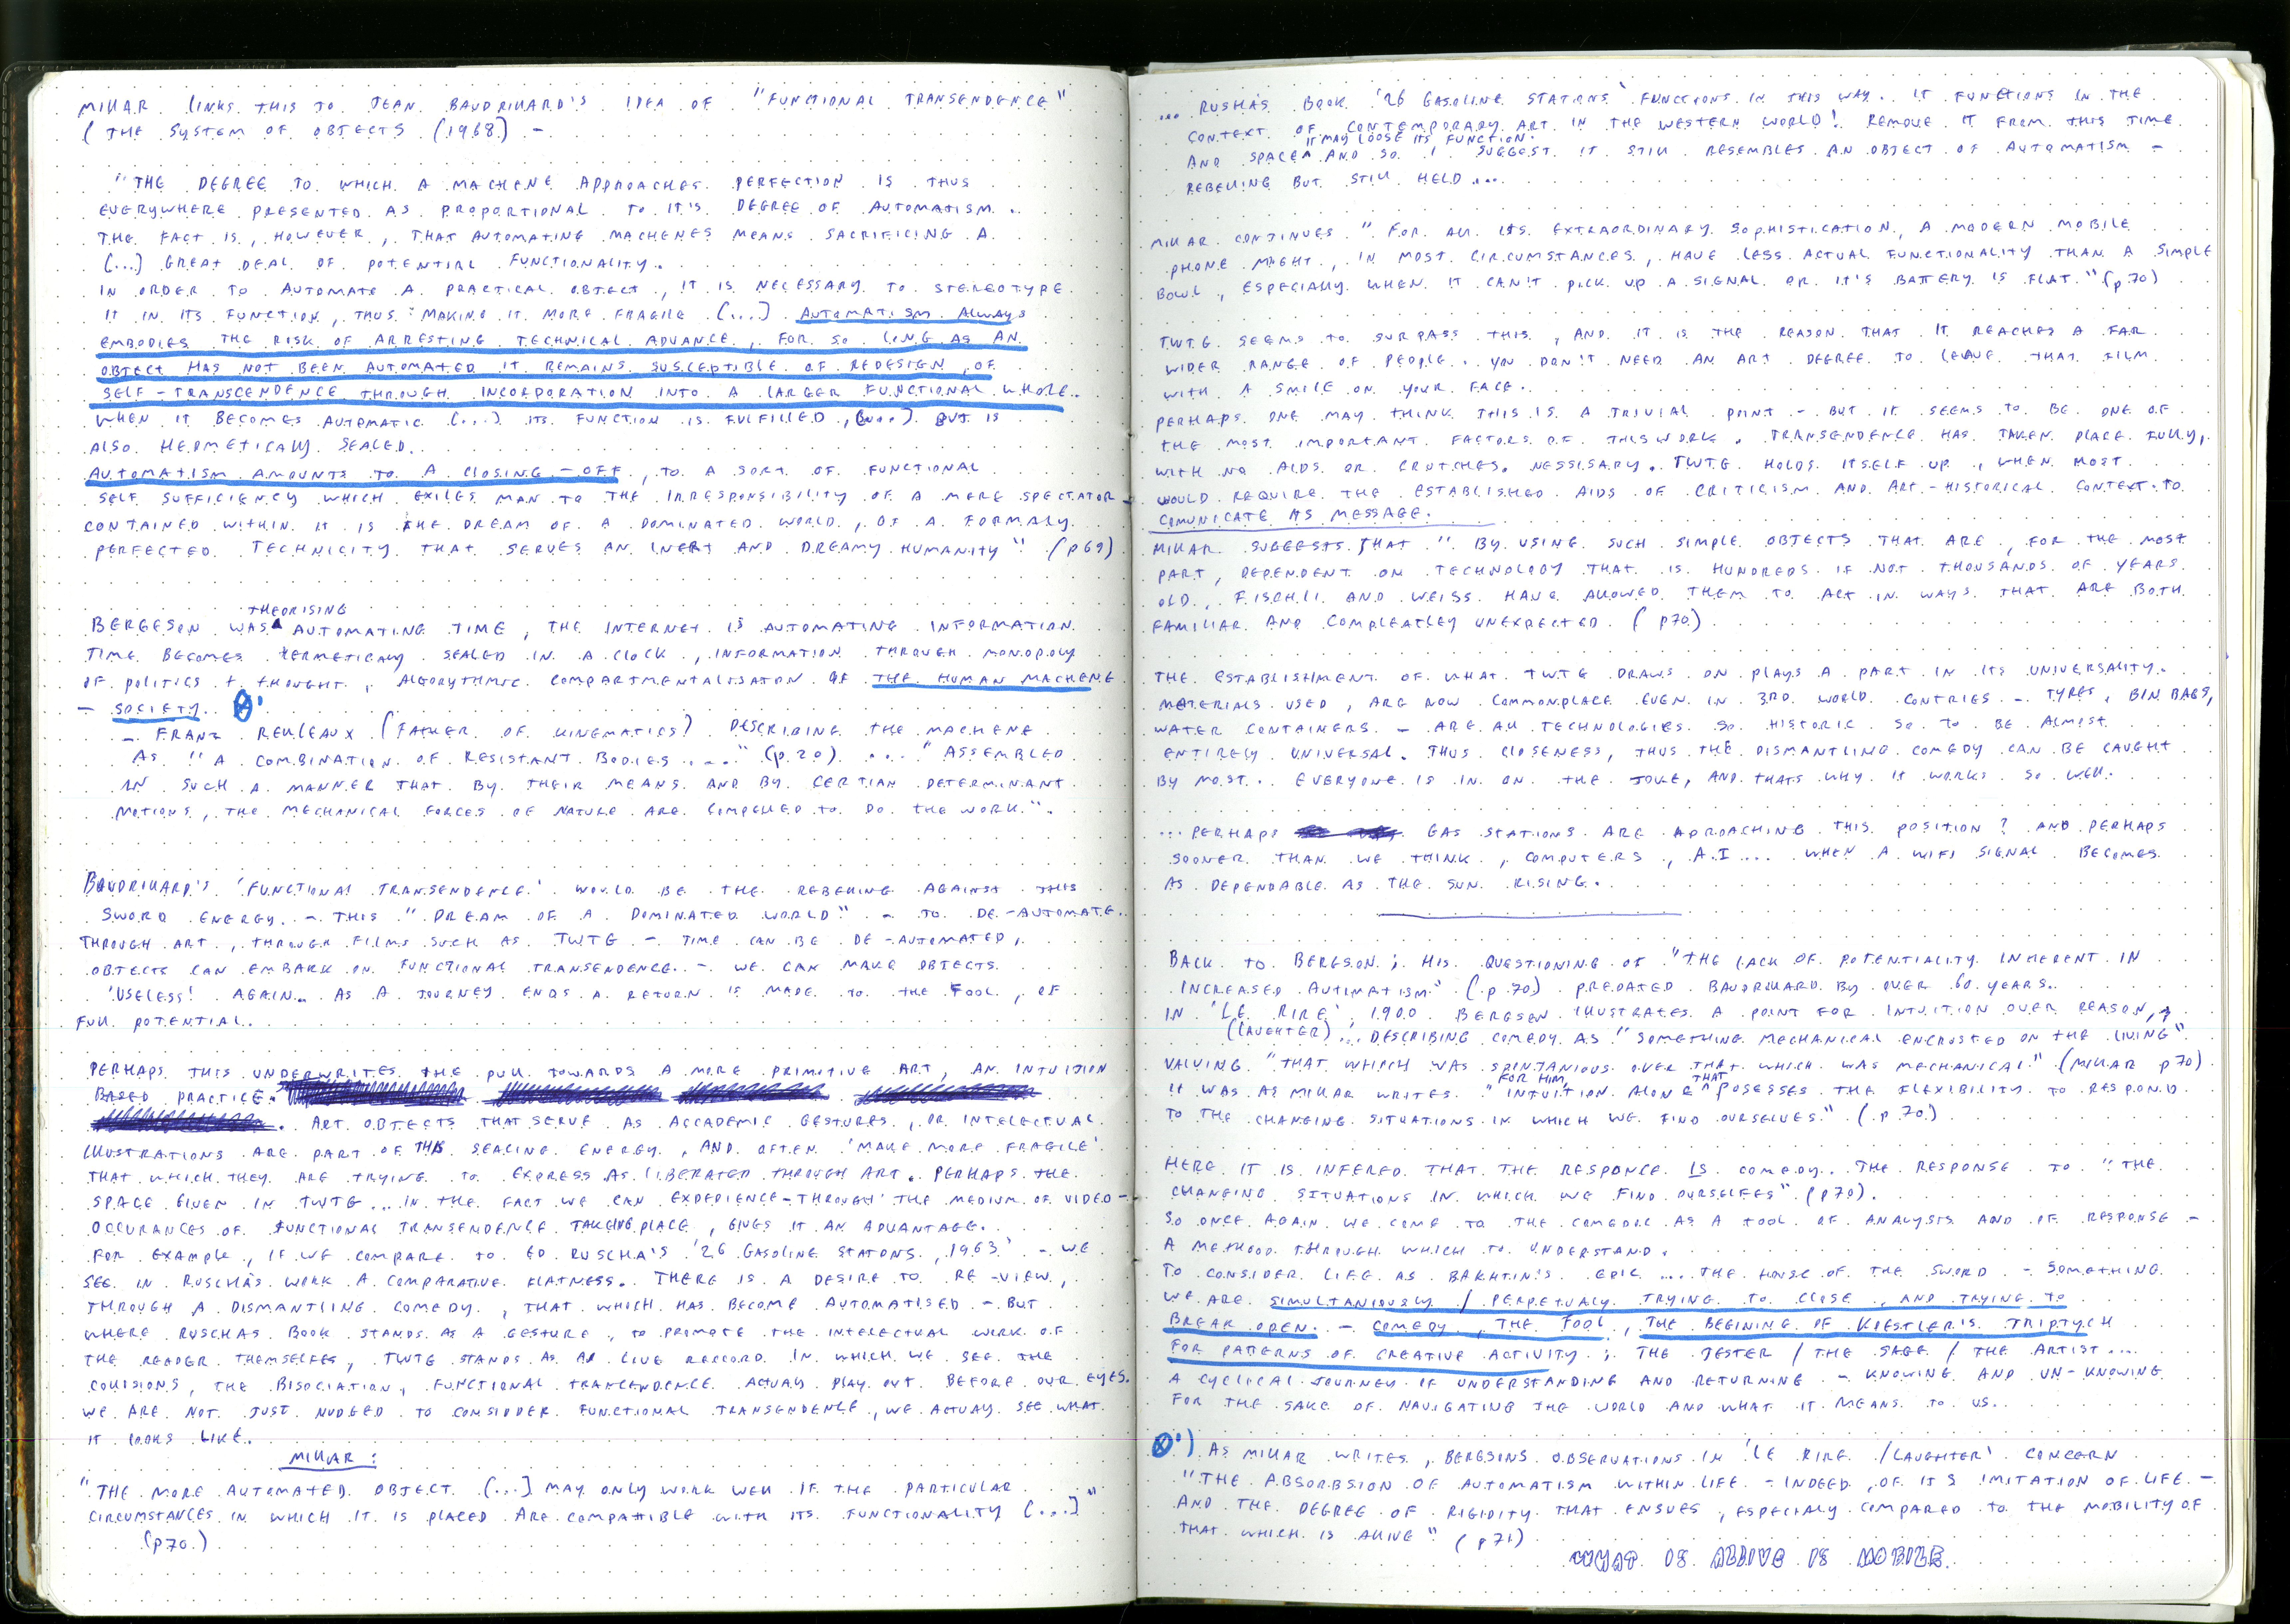 MILLAR LINKS THIS TO JEAN BAUDRILLARD'S IDEA OF "FUNCTIONAL TRANSENDENCE"
( THE SYSTEM OF OBJECTS (1968) -
"THE DEGREE TO WHICH A MACHENE APPROACHES PERFECTION IS THUS
EVERYWHERE PRESENTED AS PROPORTIONAL TO IT'S DEGREE OF AUTOMATISM..
THE FACT IS, HOWEVER, THAT AUTOMATING MACHENES MEANS SACRIFICING A
(...) GREAT DEAL OF POTENTIAL FUNCTIONALITY.
IN ORDER TO AUTOMATE A PRACTICAL OBJECT, IT IS NECESSARY TO STEREOTYPE
IT IN ITS FUNCTION, THUS MAKING IT MORE FRAGILE (...] AUTOMATISM ALWAYS
EMBODIES THE RISK OF ARRESTING TECHNICAL ADVANCE, FOR SO LONG AS AN
OBJECT HAS NOT BEEN AUTOMATED IT REMAINS SUSCEPTIBLE OF REDESIGN, OF
SELF-TRANSCENDENCE THROUGH INCORPORATION INTO A LARGER FUNCTIONAL WHOLE.
WHEN IT BECOMES AUTOMATIC (...) ITS FUNCTION IS FULFILLED, (...) BUT IS
ALSO HERMETICALLY SEALED.
AUTOMATISM AMOUNTS TO A CLOSING-OFF, TO A SORT OF FUNCTIONAL
SELF SUFFICIENCY WHICH EXILES MAN TO THE IRRESPONSIBILITY OF A MERE SPECTATOR -
CONTAINED WITHIN IT IS THE DREAM OF A DOMINATED WORLD, OF A FORMALY
PERFECTED TECHNICITY THAT SERVES AN INERT AND DREAMY HUMANITY" (p69)
THEORISING
BERGESON WAS AUTOMATING TIME, THE INTERNET IS AUTOMATING INFORMATION.
TIME BECOMES HERMETICALLY SEALED IN A CLOCK, INFORMATION THROUGH MONOPOLY
OF POLITICS + THOUGHT, ALGORYTHMIC COMPARTMENTALISATON OF THE HUMAN MACHENE
- SOCIETY.
- FRANZ REULEAUX (FATHER OF KINEMATICS) DESCRIBING THE MACHENE
AS "A COMBINATION OF RESISTANT BODIES ..." (p.20) .... "ASSEMBLED
IN SUCH A MANNER THAT BY THEIR MEANS AND BY CERTIAN DETERMINANT
MOTIONS, THE MECHANICAL FORCES OF NATURE ARE COMPELLED TO DO THE WORK".
BAUDRILLARD'S 'FUNCTIONAL TRANSENDENCE' WOULD BE THE REBELLING AGAINST THIS
SWORD ENERGY. - THIS "DREAM OF A DOMINATED WORLD" - TO DE-AUTOMATE.
THROUGH ART, THROUGH FILMS SUCH AS TWTG - TIME CAN BE DE-AUTOMATED,
OBJECTS CAN EMBARK ON FUNCTIONAL TRANSENDENCE. - WE CAN MAKE OBJECTS
'USELESS' AGAIN.. AS A JOURNEY ENDS A RETURN IS MADE TO THE FOOL, OF
FULL POTENTIAL.
PERHAPS THIS UNDERWRITES THE PULL TOWARDS A MORE PRIMITIVE ART, AN INTUITION
BASED PRACTICE.
ART OBJECTS THAT SERVE AS ACCADEMIC GESTURES, OR INTELECTUAL
ILLUSTRATIONS ARE PART OF THIS SEALING ENERGY, AND OFTEN 'MAKE MORE FRAGILE'
THAT WHICH THEY ARE TRYING TO EXPRESS AS LIBERATED THROUGH ART. PERHAPS THE
SPACE GIVEN IN TWTG ... IN THE FACT WE CAN EXPERIENCE - THROUGH THE MEDIUM OF VIDEO -
OCCURANCES OF FUNCTIONAL TRANSENDENCE TAKEING PLACE, GIVES IT AN ADVANTAGE.
FOR EXAMPLE, IF WE COMPARE TO ED RUSCHA'S '26 GASOLINE STATONS, 1963' - WE
SEE IN RUSCHA'S WORK A COMPARATIVE FLATNESS. THERE IS A DESIRE TO RE-VIEW,
THROUGH A DISMANTLING COMEDY, THAT WHICH HAS BECOME AUTOMATISED - BUT
WHERE RUSCHAS BOOK STANDS AS A GESTURE, TO PROMOTE THE INTELECTUAL WORK OF
THE READER THEMSELFES, TWTG STANDS AS A LIVE RECCORD IN WHICH WE SEE THE
COLLISIONS, THE BISOCIATION, FUNCTIONAL TRANCENDENCE ACTUALLY PLAY OUT BEFORE OUR EYES.
WE ARE NOT JUST NUDGED TO CONSIDDER FUNCTIONAL TRANSENDENCE, WE ACTUALLY SEE WHAT
IT LOOKS LIKE.
MILLAR:
"THE MORE AUTOMATED OBJECT (...] MAY ONLY WORK WELL IF THE PARTICULAR
CIRCUMSTANCES IN WHICH IT IS PLACED ARE COMPATIBLE WITH ITS FUNCTIONALITY (...]"
(p70.)
... RUSHA'S BOOK '26 GASOLINE STATIONS' FUNCTIONS IN THIS WAY.. IT FUNCTIONS IN THE
CONTEXT OF CONTEMPORARY ART IN THE WESTERN WORLD! REMOVE IT FROM THIS TIME
IT MAY LOOSE ITS FUNCTION.
AND SPACE AND SO I SUGGEST IT STILL RESEMBLES AN OBJECT OF AUTOMATISM -
REBELLING BUT STILL HELD ...
MILLAR CONTINUES "FOR ALL ITS EXTRAORDINARY SOPHISTICATION, A MODERN MOBILE
PHONE MIGHT, IN MOST CIRCUMSTANCES, HAVE LESS ACTUAL FUNCTIONALITY THAN A SIMPLE
BOWL, ESPECIALLY WHEN IT CAN'T PICK UP A SIGNAL OR IT'S BATTERY IS FLAT." (p.70)
TWTG SEEMS TO SURPASS THIS, AND IT IS THE REASON THAT IT REACHES A FAR
WIDER RANGE OF PEOPLE.. YOU DON'T NEED AN ART DEGREE TO LEAVE THAT FILM
WITH A SMILE ON YOUR FACE.
PERHAPS ONE MAY THINK THIS IS A TRIVIAL POINT - BUT IT SEEMS TO BE ONE OF
THE MOST IMPORTANT FACTORS OF THIS WORK. TRANSENDENCE HAS TAKEN PLACE FULLY,
WITH NO AIDS OR CRUTCHES NESSISARY. TWTG HOLDS ITSELF UP, WHEN MOST
WOULD REQUIRE THE ESTABLISHED AIDS OF CRITICISM AND ART-HISTORICAL CONTEXT TO
COMUNICATE ITS MESSAGE.
MILLAR SUGGESTS THAT "BY USING SUCH SIMPLE OBJECTS THAT ARE, FOR THE MOST
PART, DEPENDENT ON TECHNOLOGY THAT IS HUNDREDS IF NOT THOUSANDS OF YEARS
OLD, FISCHLI AND WEISS HAVE ALLOWED THEM TO ACT IN WAYS THAT ARE BOTH
FAMILIAR AND COMPLEATLEY UNEXPECTED. (p70)
THE ESTABLISHMENT OF WHAT TWTG DRAWS ON PLAYS A PART IN ITS UNIVERSALITY.
MATERIALS USED, ARE NOW COMMONPLACE EVEN IN 3RD WORLD CONTRIES - TYRES, BIN BAGS,
WATER CONTAINERS - ARE ALL TECHNOLOGIES SO HISTORIC SO TO BE ALMOST
ENTIRELY UNIVERSAL. THUS CLOSENESS, THUS THE DISMANTLING COMEDY CAN BE CAUGHT
BY MOST.. EVERYONE IS IN ON THE JOKE, AND THATS WHY IT WORKS SO WELL.
... PERHAPS GAS STATIONS ARE APROACHING THIS POSITION? AND PERHAPS
SOONER THAN WE THINK, COMPUTERS, A.I ... WHEN A WIFI SIGNAL BECOMES
AS DEPENDABLE AS THE SUN RISING.
BACK TO BERGSON; HIS QUESTIONING OF "THE LACK OF POTENTIALITY INHERENT IN
INCREASED AUTIMATISM" (p.70) PREDATED BAUDRILLARD BY OVER 60 YEARS..
IN 'LE RIRE' 1900 BERGSEN ILLUSTRATES A POINT FOR INTUITION OVER REASON,
(LAUGHTER) ... DESCRIBING COMEDY AS "SOMETHING MECHANICAL ENCRUSTED ON THE LIVING"
VALUING "THAT WHICH WAS SPONTANIOUS OVER THAT WHICH WAS MECHANICAL" (MILLAR p70)
FOR HIM, THAT
IT WAS AS MILLAR WRITES "INTUITION ALONE POSESSES THE FLEXIBILITY TO RESPOND
TO THE CHANGING SITUATIONS IN WHICH WE FIND OURSELVES" (p.70.)
HERE IT IS INFERED THAT THE RESPONCE IS COMEDY.. THE RESPONSE TO "THE
CHANGING SITUATIONS IN WHICH WE FIND OURSELFES" (p70).
SO ONCE AGAIN WE COME TO THE COMEDIC AS A TOOL OF ANALYSIS AND OF RESPONSE -
A METHOOD THROUGH WHICH TO UNDERSTAND.
TO CONSIDER LIFE AS BAKHTIN'S EPIC ... THE HOUSE OF THE SWORD - SOMETHING
WE ARE SIMULTANIOUSLY / PERPETUALY TRYING TO CLOSE, AND TRYING TO
BREAK OPEN. - COMEDY, THE FOOL, THE BEGINING OF KOESTLER'S TRIPTYCH
FOR PATTERNS OF CREATIVE ACTIVITY; THE JESTER / THE SAGE / THE ARTIST....
A CYCLICAL JOURNEY OF UNDERSTANDING AND RETURNING - KNOWING AND UN-KNOWING
FOR THE SAKE OF NAVIGATING THE WORLD AND WHAT IT MEANS TO US..
AS MILLAR WRITES, BERGSINS OBSERVATIONS IN 'LE RIRE /LAUGHTER' CONCERN
"THE ABSORBSION OF AUTOMATISM WITHIN LIFE - INDEED, OF ITS IMITATION OF LIFE -
AND THE DEGREE OF RIGIDITY THAT ENSUES, ESPECIALY COMPARED TO THE MOBILITY OF
THAT WHICH IS ALIVE" (p71)
WHAT IS ALLIVE IS MOBILE.